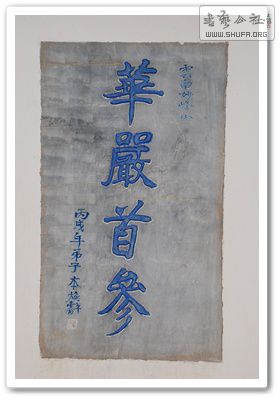 書藝公社
WWW.SHUFA.ORG
雲南妙峰山
華嚴首參
丙戌年弟子